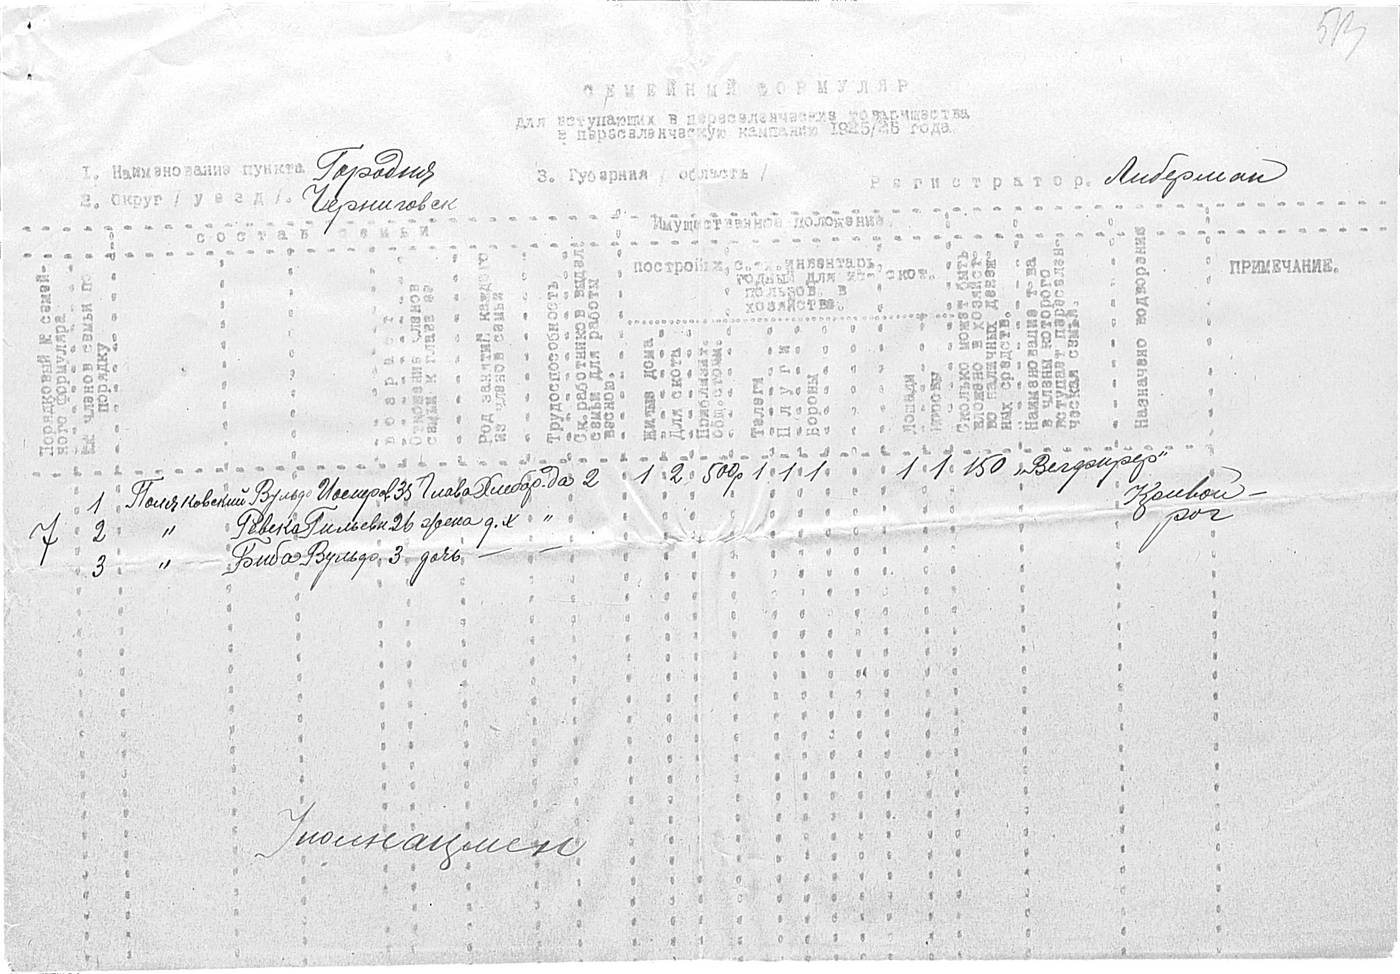 513
СЕМЕЙНЫЙ ФОРМУЛЯР
для вступающих в переселенческие товарищества
в переселенческую кампанию 1925/26 года.
1. Наименование пункта Городня
3. Губерния / область /
Регистратор. Либерман
2. Округ / уезд /. Черниговск
СОСТАВ СЕМЬИ
Имущественное положение.
Порядковый № семейного формуляра
№№ членов семьи по порядку
возраст
Отношение членов семьи к главе ее
Род занятий каждого из членов семьи
Трудоспособность
Ск. работников выдел. семьи для работы весною.
постройки, с.-х. инвентарь, годный для использов. в хозяйстве.
скот.
Жилые дома
Для скота
Приблизит. общ. стоим.
Телеги
Плуги
Бороны
Лошади
Коровы
Сколько может быть вложено в хозяйство наличных денежных средств.
Наименование т-ва в члены которого вступает переселенческая семья.
Назначено водворение
ПРИМЕЧАНИЕ.
7
1 Поляковский Вульф 35 Глава Хлебор. Да 2 1 2 500р 1 1 1 1 1 150
Кривой-
рог
2 " Ревека 26 жена д. х "
3 " Вульф. 3 дочь — —